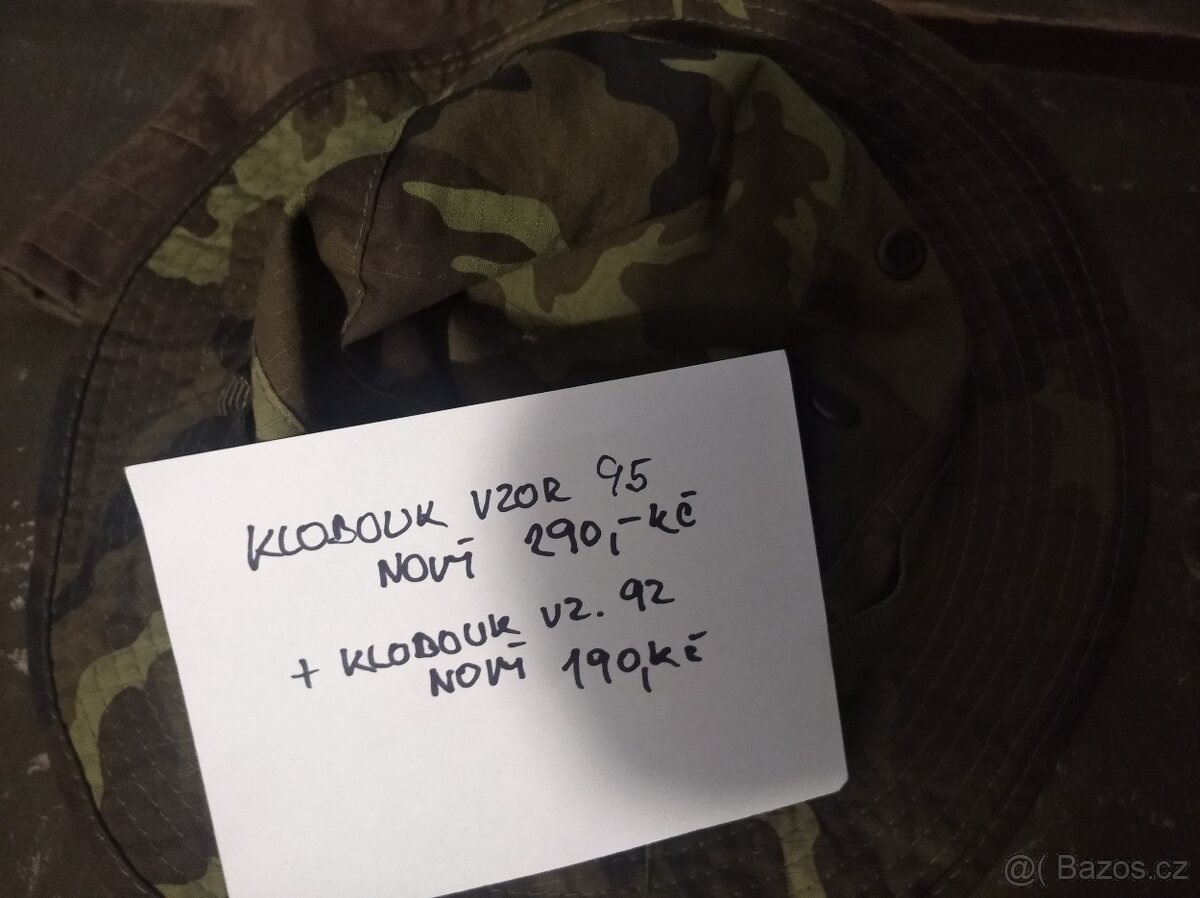 KLOBOUK VZOR 95
NOVÝ 290,- KČ
+ KLOBOUK VZ. 92
NOVÝ 190,KČ
@( Bazos.cz